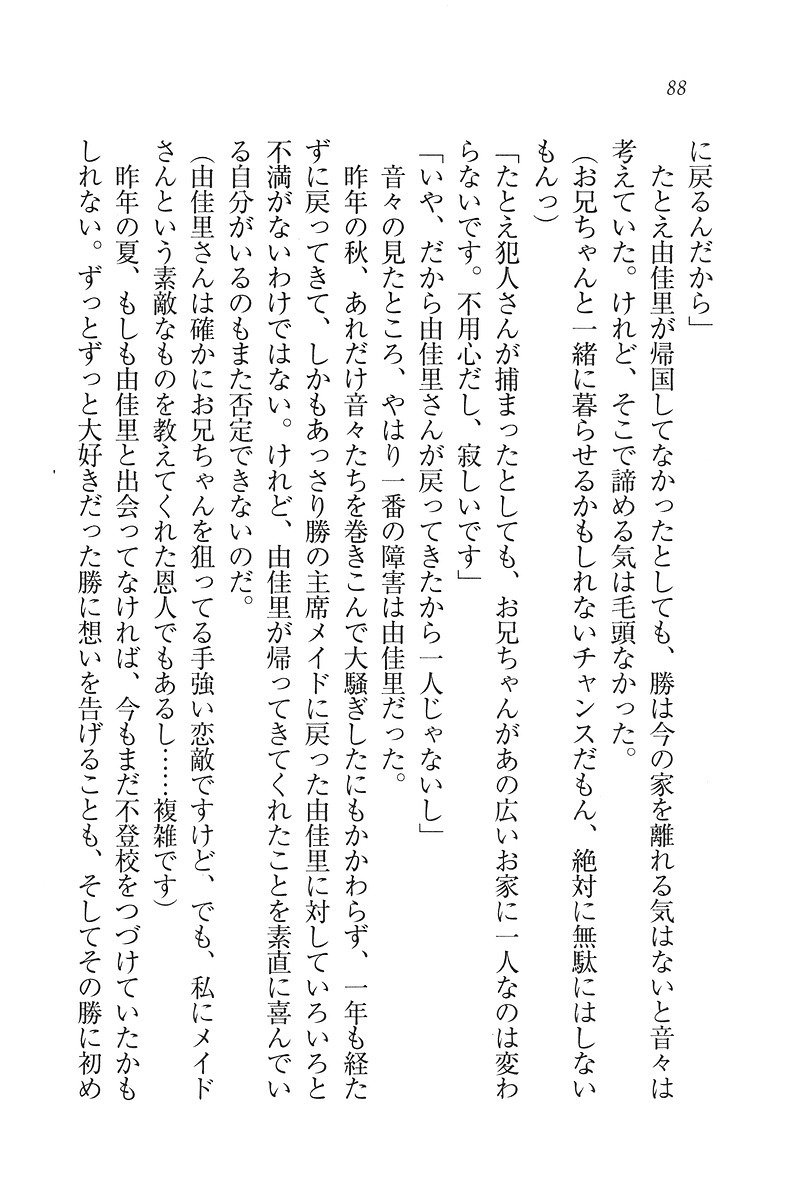 88
に戻るんだから」
　たとえ由佳里が帰国してなかったとしても、勝は今の家を離れる気はないと音々は
考えていた。けれど、そこで諦める気は毛頭なかった。
（お兄ちゃんと一緒に暮らせるかもしれないチャンスだもん、絶対に無駄にはしない
もんっ）
「たとえ犯人さんが捕まったとしても、お兄ちゃんがあの広いお家に一人なのは変わ
らないです。不用心だし、寂しいです」
「いや、だから由佳里さんが戻ってきたから一人じゃないし」
　音々の見たところ、やはり一番の障害は由佳里だった。
　昨年の秋、あれだけ音々たちを巻きこんで大騒ぎしたにもかかわらず、一年も経た
ずに戻ってきて、しかもあっさり勝の主席メイドに戻った由佳里に対していろいろと
不満がないわけではない。けれど、由佳里が帰ってきてくれたことを素直に喜んでい
る自分がいるのもまた否定できないのだ。
（由佳里さんは確かにお兄ちゃんを狙ってる手強い恋敵ですけど、でも、私にメイド
さんという素敵なものを教えてくれた恩人でもあるし……複雑です）
　昨年の夏、もしも由佳里と出会ってなければ、今もまだ不登校をつづけていたかも
しれない。ずっとずっと大好きだった勝に想いを告げることも、そしてその勝に初め